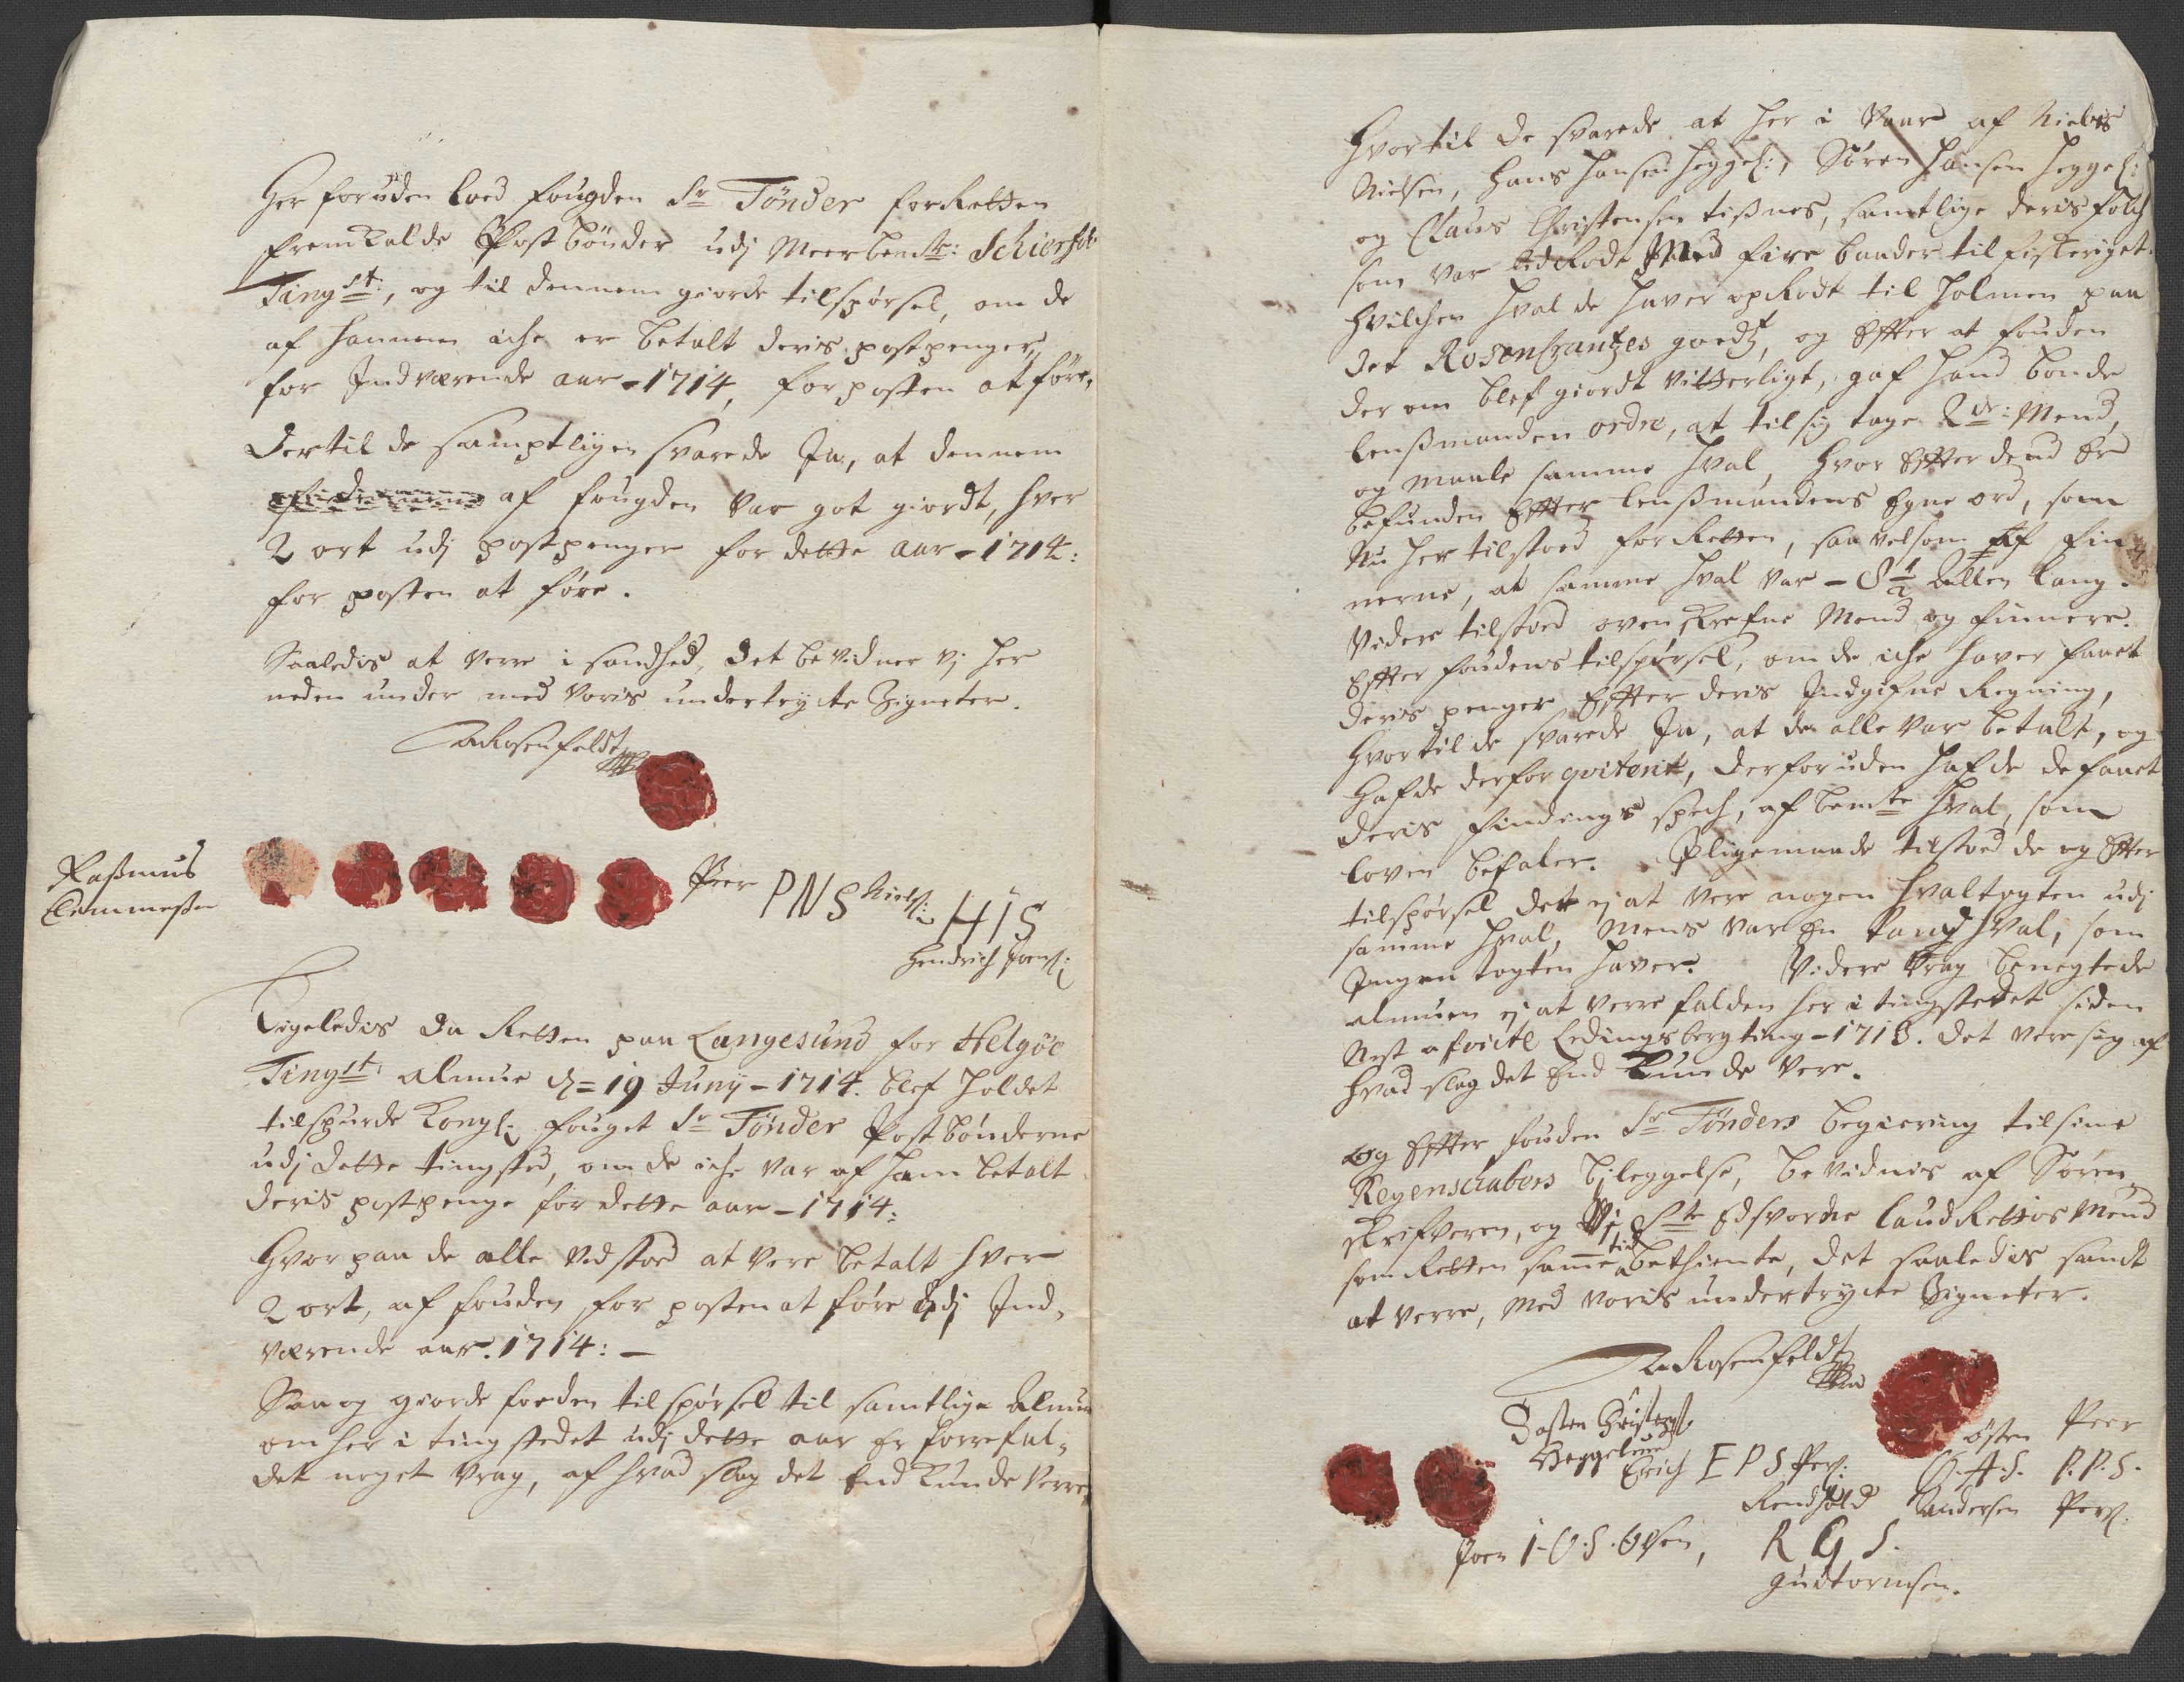 Her foruden loed fougden Sr Tönder for Retten
fremkalde Postbönder udj Meerbemte: Schierfve
Tingst:, og til dennem giorde tilspörsel, om de
af hannem iche er betalt deris postpenger,
for Indværende aar - 1714, for posten at före,
Dertil de samptligen svarede Ja, at dennem
af fougden var got giordt, hver
2 ort udj postpenger for dette aar - 1714:
for posten at före.
Saaledis at verre i sandhed, det bevidner vj her
neden under med voris undertrychte Zigneter.
Rosenfeldt
Rassmus
Clemmessen
Peer PNS Niels: HIS
Hendrich Joens:
Ligeledis da Retten paa Langesund for Helgöe
Tingst: almue d= 19 Junij - 1714. blef holdet
tilspurde Kongl: fouget Sr Tönder Postbönderne
udj dette tingsted, om de iche var af ham betalt
deris postpenge for dette aar - 1714:
Hvorpaa de alle vedstod at vere betalt hver
2 ort, af fouden for posten at före udj Ind,
værende aar. 1714: -
Saa og giorde fouden tilspörsel til samtlige Almue
om her i tingstedet udj dette aar er forrefal,
det noget vrag, af hvad slag det end kunde verre,
Hvortil de svarede at her i Vaar af Niels
Nielsen, Hans Hansen Heggel:, Sören Hansen Heggel:
og Claus Christensen tissnes, samtlige deris folch
som var udRode med fire baader til fiskeriget.
Hvilchen hval de haver opRodt til Holmen paa
det Rosencrantzes goedtz, og Effter at fouden
der om blef giordt vitterligt, gaf hand bonde
lenssmanden ordre, at til sig tage 2de: Mend,
og maale samme hval, hvor Effter dend er
befunden Effter lenssmandens Egne ord, som
Nu her tilstoed for Retten, saa velsom af fin
nerne, at samme hval var - 8 1/2 Allen lang.
Videre tilstoed ovenskrefne Mend og finnere.
Effter foudens tilspörsel, om de iche haver faaet
deris penger Effter deris Indgifne Regning,
Hvortil de svarede Ja, at de alle var betalt, og
hafde derfor qviterit, derforuden hafde de faaet
deris findings spech, af bemte hval, som
loven befaler. Ligemaade tilstoed de og Effter
tilspörsel dett ej at vere nogen hvaltogten udj
samme hval, mens var en tand hval, som
Ingen togten haver. Videre vrag benegtede
almuen ej at verre falden her i tingstedet siden
Nest afvicte Ledingsbergting - 1713. det vere sig af
hvad slag det End kunde vere.
og Effter fouden Sr Tönders begiering til sine
Regenschabers bileggelse, bevidnis af Soren
skrifveren, og Vj Edsvorne laudRettis Mend
som Retten samme tid bethiente, det saaledis sandt
at verre, med voris undertrychte Zigneter.
Rosenfeldt
Joften Christens:
Heggelund
Erich E P S Pers:
östen Peer
O.A.S. P.P.S.
Rendhold Andersen Pers:
Joen I.O.S. Olsen, R G S.
Gudtormsen.